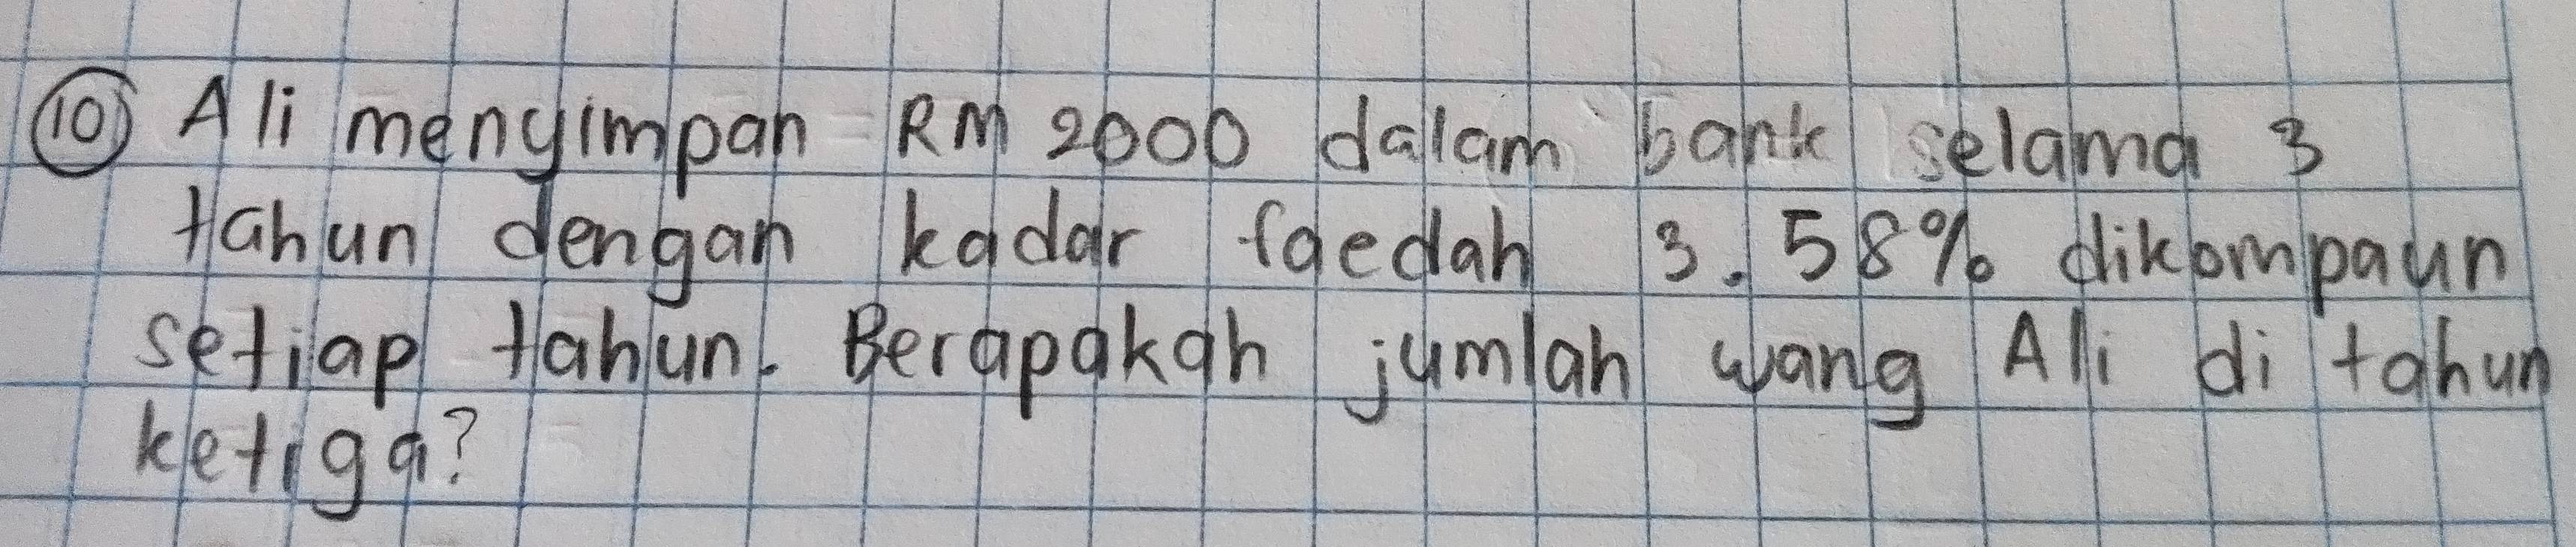 10) Ali menyimpan RM 2000 dalam bank selama 3
tahun dengan kadar faedah 3.58% dikompaun
setiap tahun. Berapakah jumlah wang Ali di tahun
ketiga?